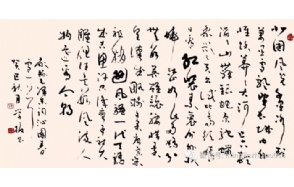 北国风光千里冰封
万里雪飘望长城内外
惟余莽莽大河上下顿失滔
滔山舞银蛇原驰蜡象
欲与天公试比高须晴
日看红装素裹分外妖
娆江山如此多娇引无
数英雄竞折腰惜秦
皇汉武略输文采唐宗
宋祖稍逊风骚一代天骄
成吉思汗只识弯弓射大
雕俱往矣数风流人
物还看今朝
毛泽东词沁园春
雪一首
癸巳秋月